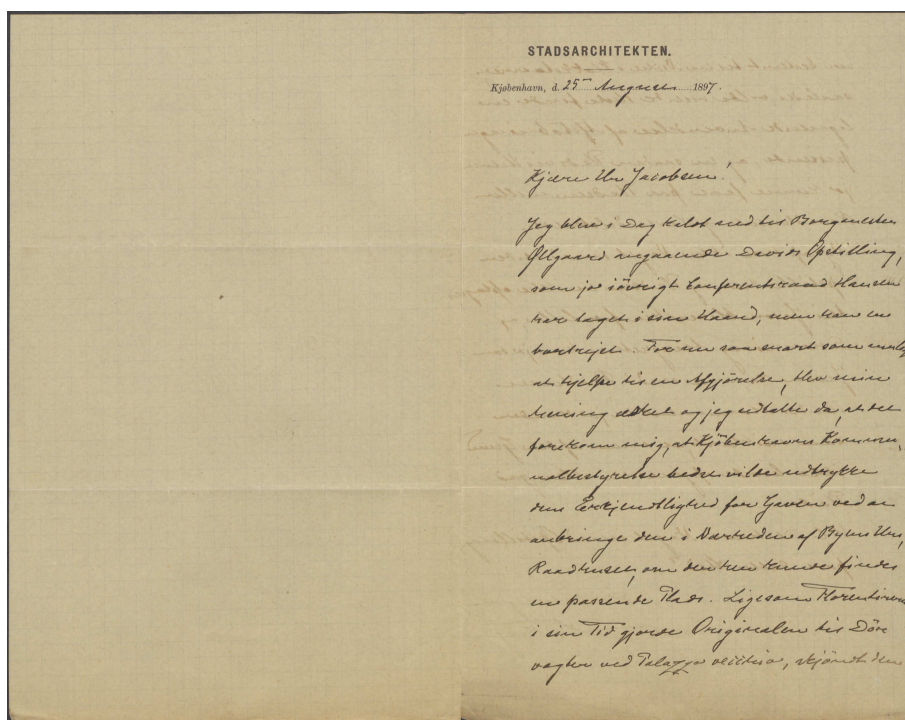 STADSARCHITEKTEN.
Kjøbenhavn, d. 25 August 1897.
Kjære Hr Jacobsen!
Jeg blev i Dag kaldt ned til Borgmester
Øllgaard angaaende Davids Opstilling,
som jo iøvrigt Conferentsraad Hansen
har taget i sin Haand, men han er
bortrejst. For nu saa snart som muligt
at hjælpe til en Afgjørelse, blev min
Mening æsket og jeg udtalte da, at det
forekom mig, at Kjøbenhavns Kommu-
nalbestyrelse bedst vilde udtrykke
dens Erkjendtlighed for Gaven ved at
anbringe den i Nærheden af Byens Hus,
Raadhuset, om der her kunde findes
en passende Plads. Ligesom Florentinerne
i sin Tid gjorde Originalen til Dør-
vogter ved Palazzo vecchio, skjøndt den